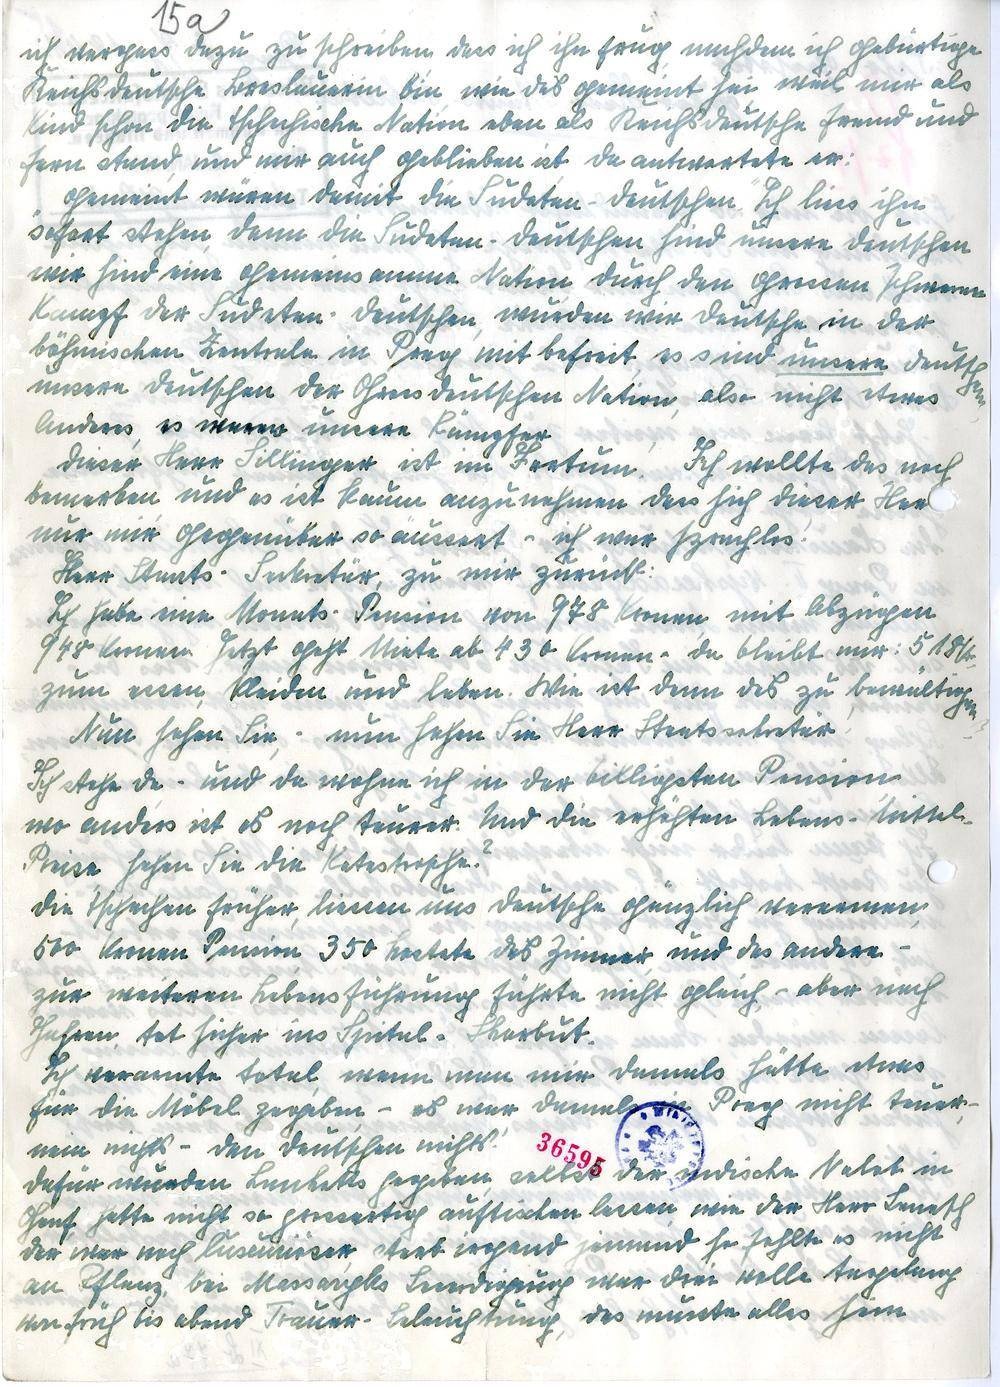 15a
ich vergass dazu zu schreiben dass ich ihn frug, nachdem ich gebürtige
Reichsdeutsche Breslauerin bin, wie das gemeint sei weil mir als
Kind schon die tschechische Nation eben als Reichsdeutsche fremd und
fern stand, und mir auch geblieben ist da antwortete er:
gemeint wären damit die Sudeten-deutschen "Ich liess ihn
sofort stehen denn die Sudeten-deutschen sind unsere deutschen
wir sind eine gemeinsamme Nation, durch den grossen schweren
Kampf der Sudeten-deutschen, wurden wir deutsche in der
böhmischen Zentrale in Prag mit befreit, es sind unsere deutschen,
unsere deutschen der Grossdeutschen Nation, also nicht etwas
Anderes, es waren unsere Kämpfer
dieser Herr Sillinger ist im Irrtum! Ich wollte das noch
bemerken und es ist kaum anzunehmen dass sich dieser Herr
nur mir gegenüber so äussert - ich war sprachlos!
Herr Staats-Sekretär, zu mir zurück:
Ich habe eine Monats-Pension von 978 Kronen, mit Abzügen
948 Kronen. Jetzt geht Miete ab 430 Kronen - da bleibt mir: 518 Kr.
zum essen, kleiden und leben. Wie ist denn das zu bewältigen?
Nun sehen Sie, - nun sehen Sie Herr Staatssekretär!
Ich stehe da - und da wohne ich in der billigsten Pension
wo anders ist es noch teurer. Und die erhöhten Lebens-Mittel-
Preise, sehen Sie die Katastrophe?
die Tschechen früher, liessen uns deutsche gänzlich verarmen,
500 Kronen Pension, 350 kostete das Zimmer, und das andere -
zur weiteren Lebensführung führte nicht gleich - aber nach
Jahren, tot sicher ins Spital - Skorbut.
Ich verarmte total, wenn man mir damals hätte etwas
für die Möbel gegeben - es war damals in Prag nicht teuer -
nein nichts - den deutschen nichts!
36595
dafür wurden Banketts gegeben, selbst der indische Nabob in
Genf hatte nicht so grossartig auftischen lassen, wie der Herr Benesch
der war noch luxuriöser, starb irgend jemand so fehlte es nicht
an Pflanz, bei Massaryks Beerdigung war drei volle Tagelang
von früh bis abend Trauer-Beleuchtung, das musste alles sein